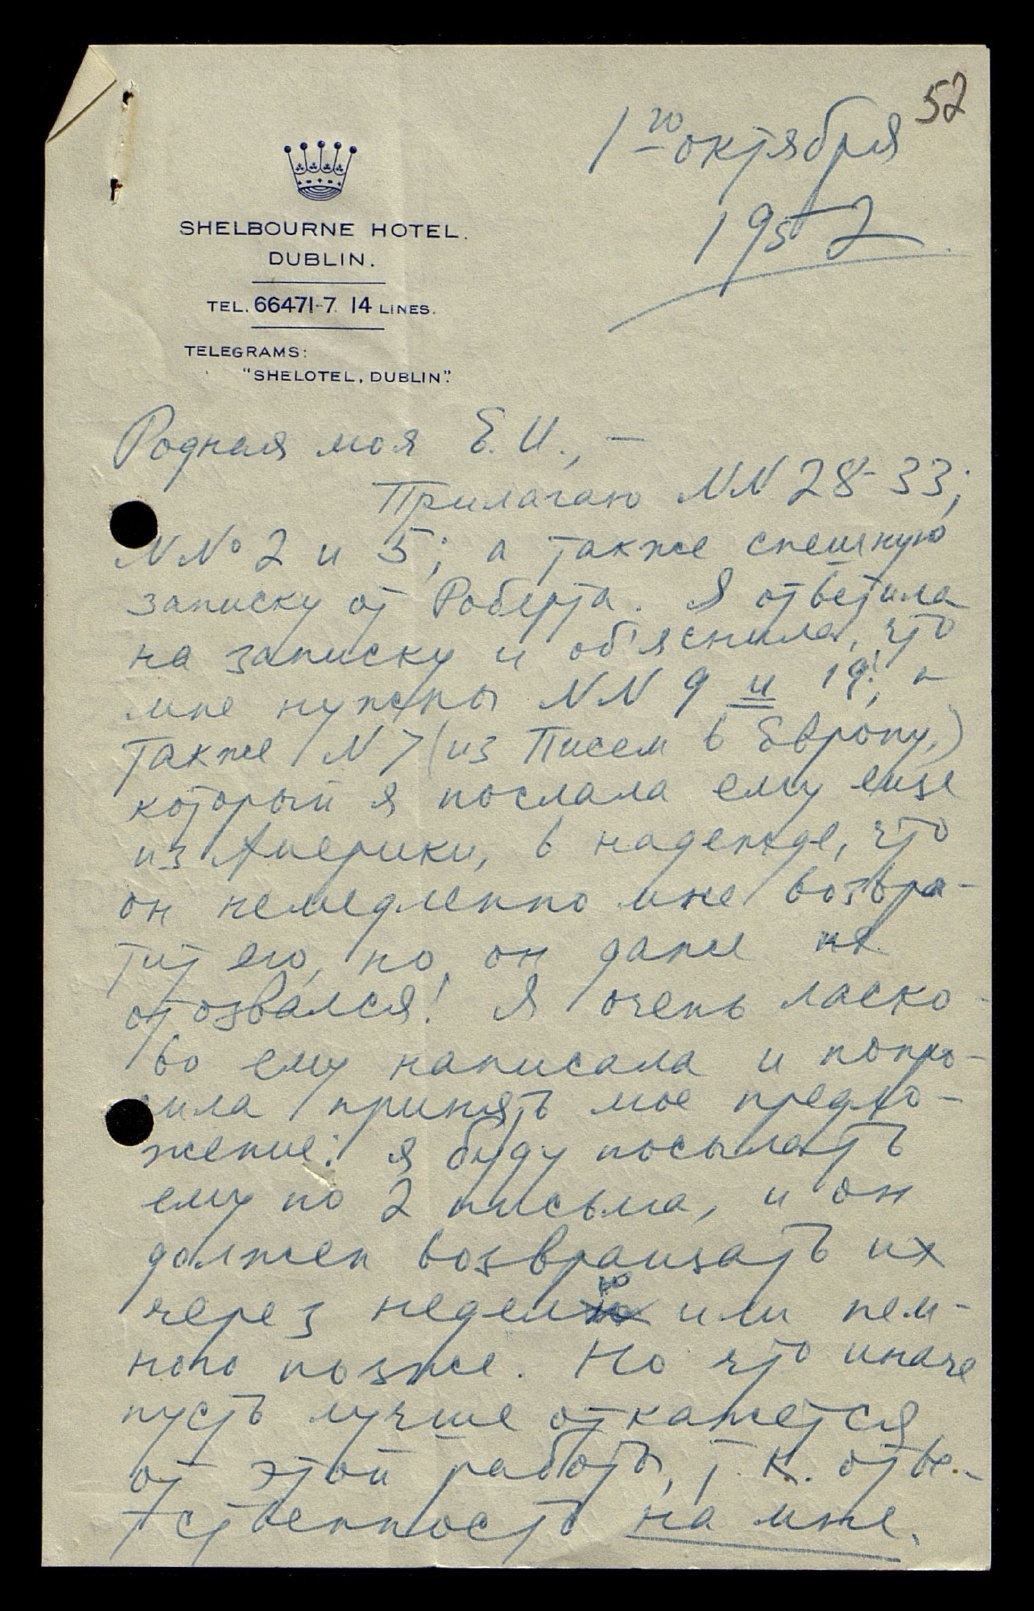 52
1го октября
1952
SHELBOURNE HOTEL.
DUBLIN.
TEL. 66471-7 14 LINES.
TELEGRAMS:
"SHELOTEL, DUBLIN".
Родная моя Е.И., —
Прилагаю NN 28-33;
NNo 2 и 5; а также спешную
записку от Роберта. Я ответила
на записку и об'яснила, что
мне нужны NN 9 и 19!, а
также N 7 (из Писем в Европу,)
который я послала ему еще
из Америки, в надежде, что
он немедленно мне возвра-
тит его, но он даже не
отозвался! Я очень ласко-
во ему написала и попро-
сила принять мое предло-
жение: я буду посылать
ему по 2 письма, и он
должен возвращать их
через неделю или нем-
ного позже. Но что иначе
пусть лучше откажется
от этой работы, т.к. отве-
тственность на мне.